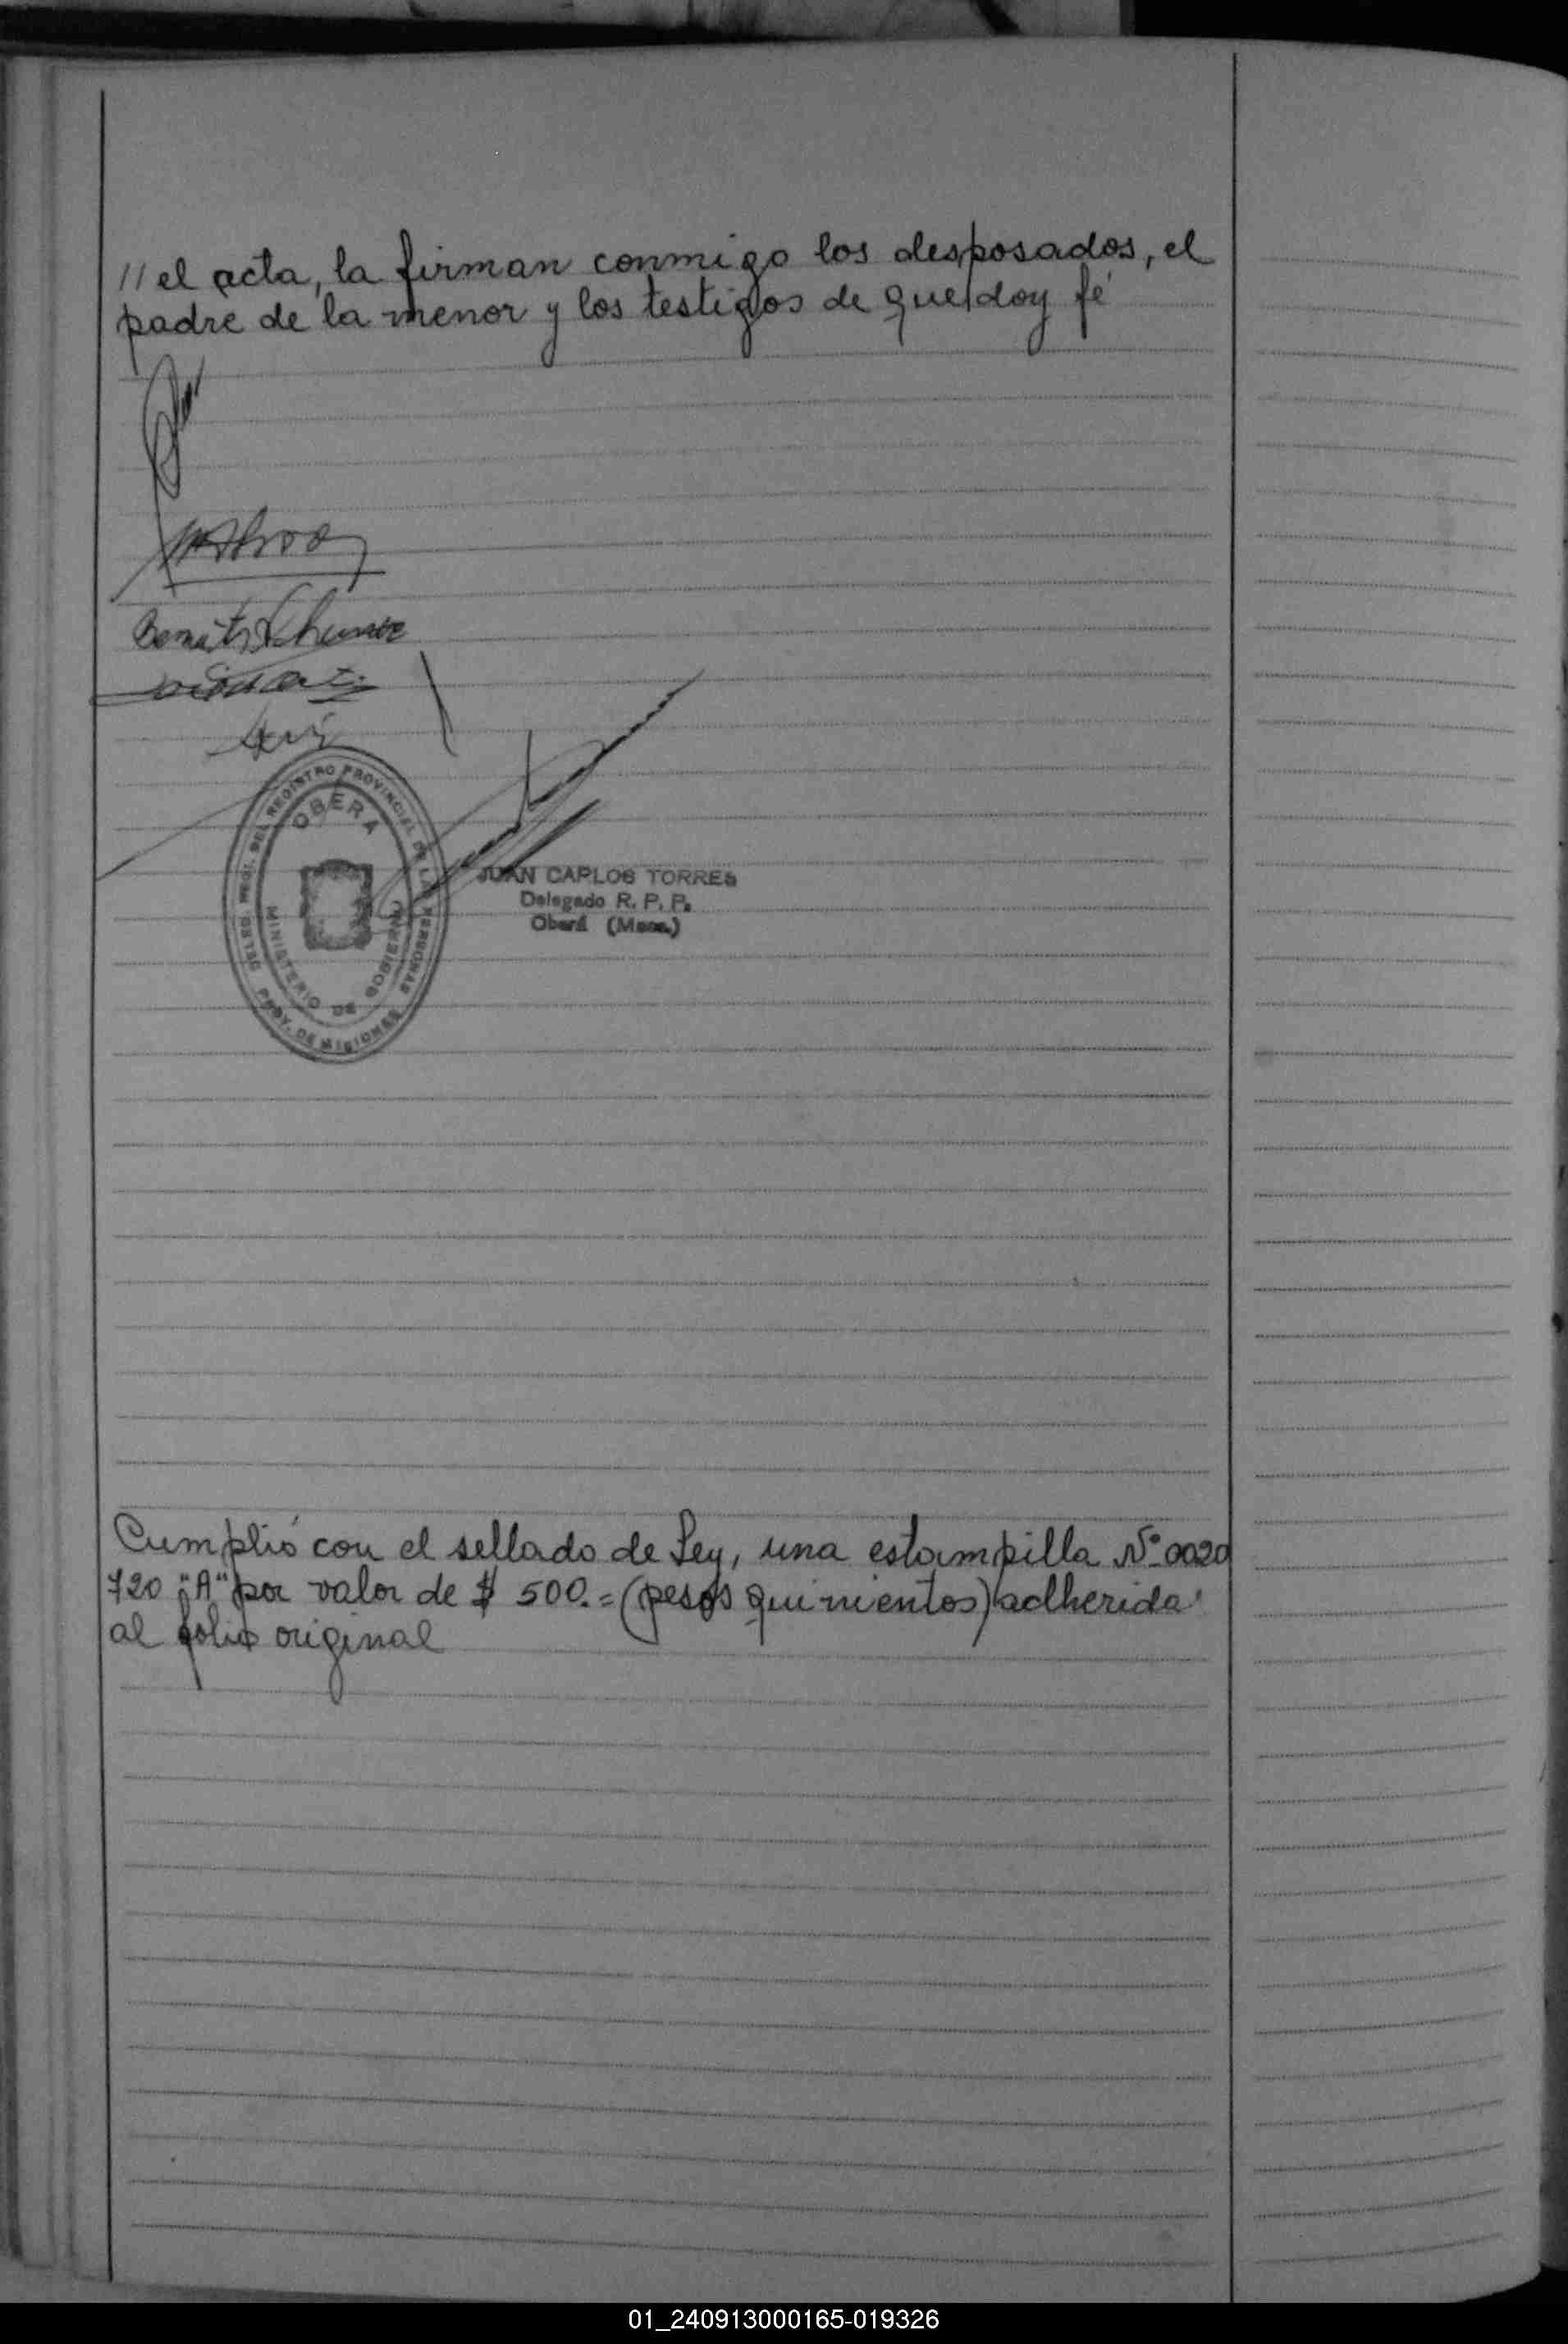 // el acta, la firman conmigo los desposados, el
padre de la menor y los testigos de que doy fé
OBERA
MINISTERIO DE GOBIERNO
REGISTRO PROVINCIAL DE LAS PERSONAS
PROV. DE MISIONES
JUAN CARLOS TORRES
Delegado R. P. P.
Oberá (Mnes.)
Cumplió con el sellado de Ley, una estampilla Nº 0020
720 "A" por valor de $ 500.= (pesos quinientos) adherida
al folio original
01_240913000165-019326